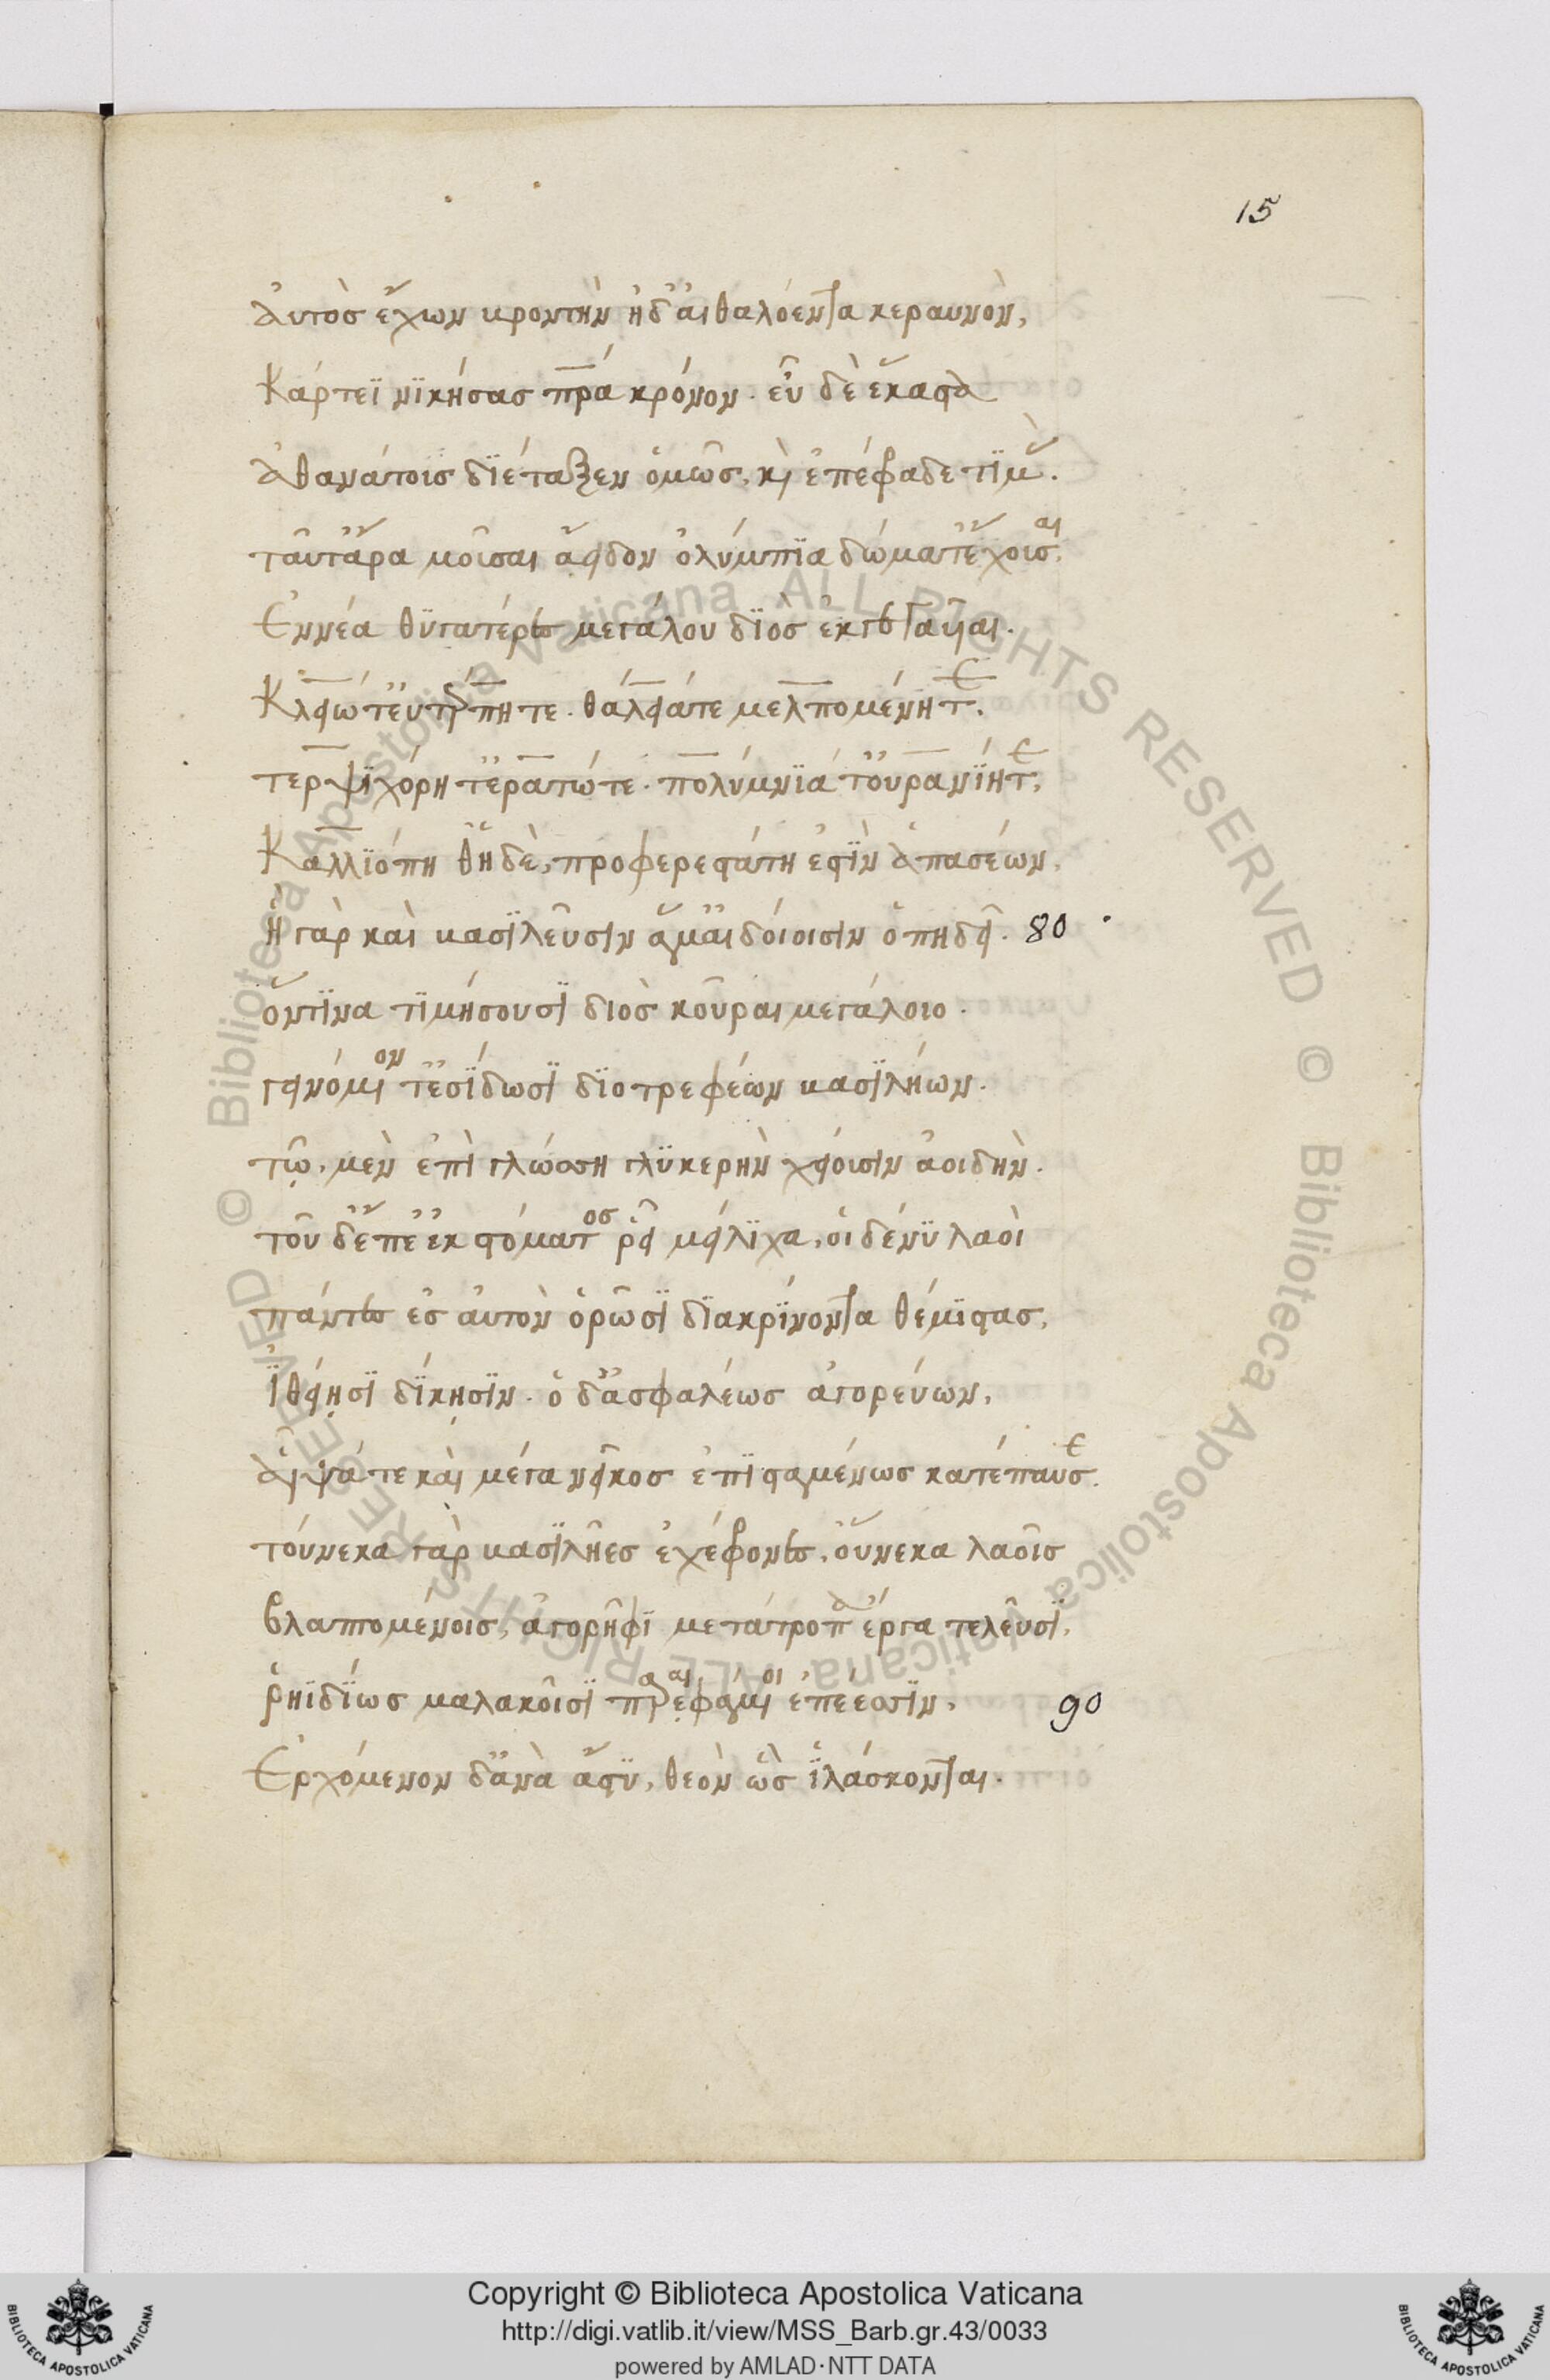 15
ἀυτὸσ ἔχων βροντὴν ἠδ' ἀιθαλόεντα κεραυνὸν,
κάρτεϊ νϊκήσασ πρα κρόνον. ἐῦ δὲ ἕκαστα
ἀθανάτοισ δϊέταξεν ὁμῶσ. κὶ ἐπέφραδε τϊμὰσ.
ταῦτ' ἄρα μοῦσαι ἄειδον ὀλύμπϊα δώματ' ἔχουσαι.
Ἐννέα θϋγατέρεσ μεγάλου δϊὸσ ἐκγεγαυῖαι.
Κλειώ τ' ἐυτέρπη τε. θάλειά τε μελπομένη τε.
τερψϊχόρη τ' ἐρατώ τε. πολύμνϊά τ' οὐρανΐη τε,
Καλλϊόπη θ' ἡ δὲ, προφερεστάτη ἐστϊν ἁπασέων.
ἣ γὰρ καὶ βασϊλεῦσιν ἅμ' αἰδοίοισιν ὀπηδεῖ. 80
ὅντϊνα τϊμήσουσϊ διὸσ κοῦραι μεγάλοιο.
γεινόμενον τ' ἐσΐδωσϊ δϊοτρεφέων βασϊλήων.
τῷ. μὲν ἐπὶ γλώσση γλϋκερὴν χείουσιν ἀοιδὴν.
τοῦ δ' ἔπε' ἐκ στόματοσ ῥεῖ μείλϊχα. οἱ δένϋ λαὸι
πάντεσ ἐσ ἀυτὸν ὁρῶσϊ δϊακρΐνοντα θέμϊστασ,
ϊθείῃσϊ δΐκῃσϊν. ὁ δ' ἀσφαλέωσ ἀγορεύων,
ἀῖψά τε κὰι μέγα νεῖκοσ ἐπϊσταμένωσ κατέπαυσε.
τούνεκα γὰρ βασϊλῆεσ ἐχέφρονεσ. οὕνεκα λαοῖσ
βλαπτομένοισ, ἀγορῆφϊ μετάτροπα ἔργα τελεῦσϊ,
ῥηϊδΐωσ μαλακοῖσϊ παραιφάμενοι ἐπέεσσϊν, 90
Ἐρχόμενον δ' ἀνὰ ἄστϋ, θεὸν ὣσ ϊλάσκονται.
Copyright © Biblioteca Apostolica Vaticana
http://digi.vatlib.it/view/MSS_Barb.gr.43/0033
powered by AMLAD·NTT DATA
BIBLIOTECA APOSTOLICA VATICANA
BIBLIOTECA APOSTOLICA VATICANA
© Biblioteca Apostolica Vaticana ALL RIGHTS RESERVED © Biblioteca Apostolica Vaticana ALL RIGHTS RESERVED